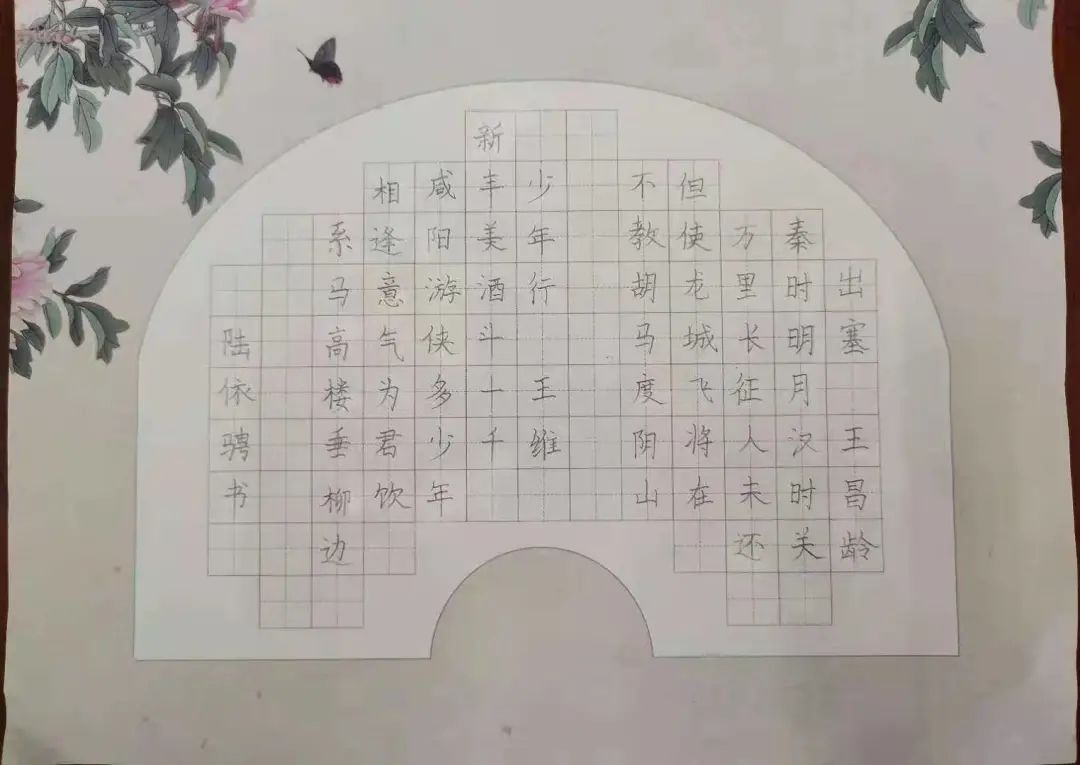 出塞 王昌龄
秦时明月汉时关
万里长征人未还
但使龙城飞将在
不教胡马度阴山
少年行 王维
新丰美酒斗十千
咸阳游侠多少年
相逢意气为君饮
系马高楼垂柳边
陆依骋书